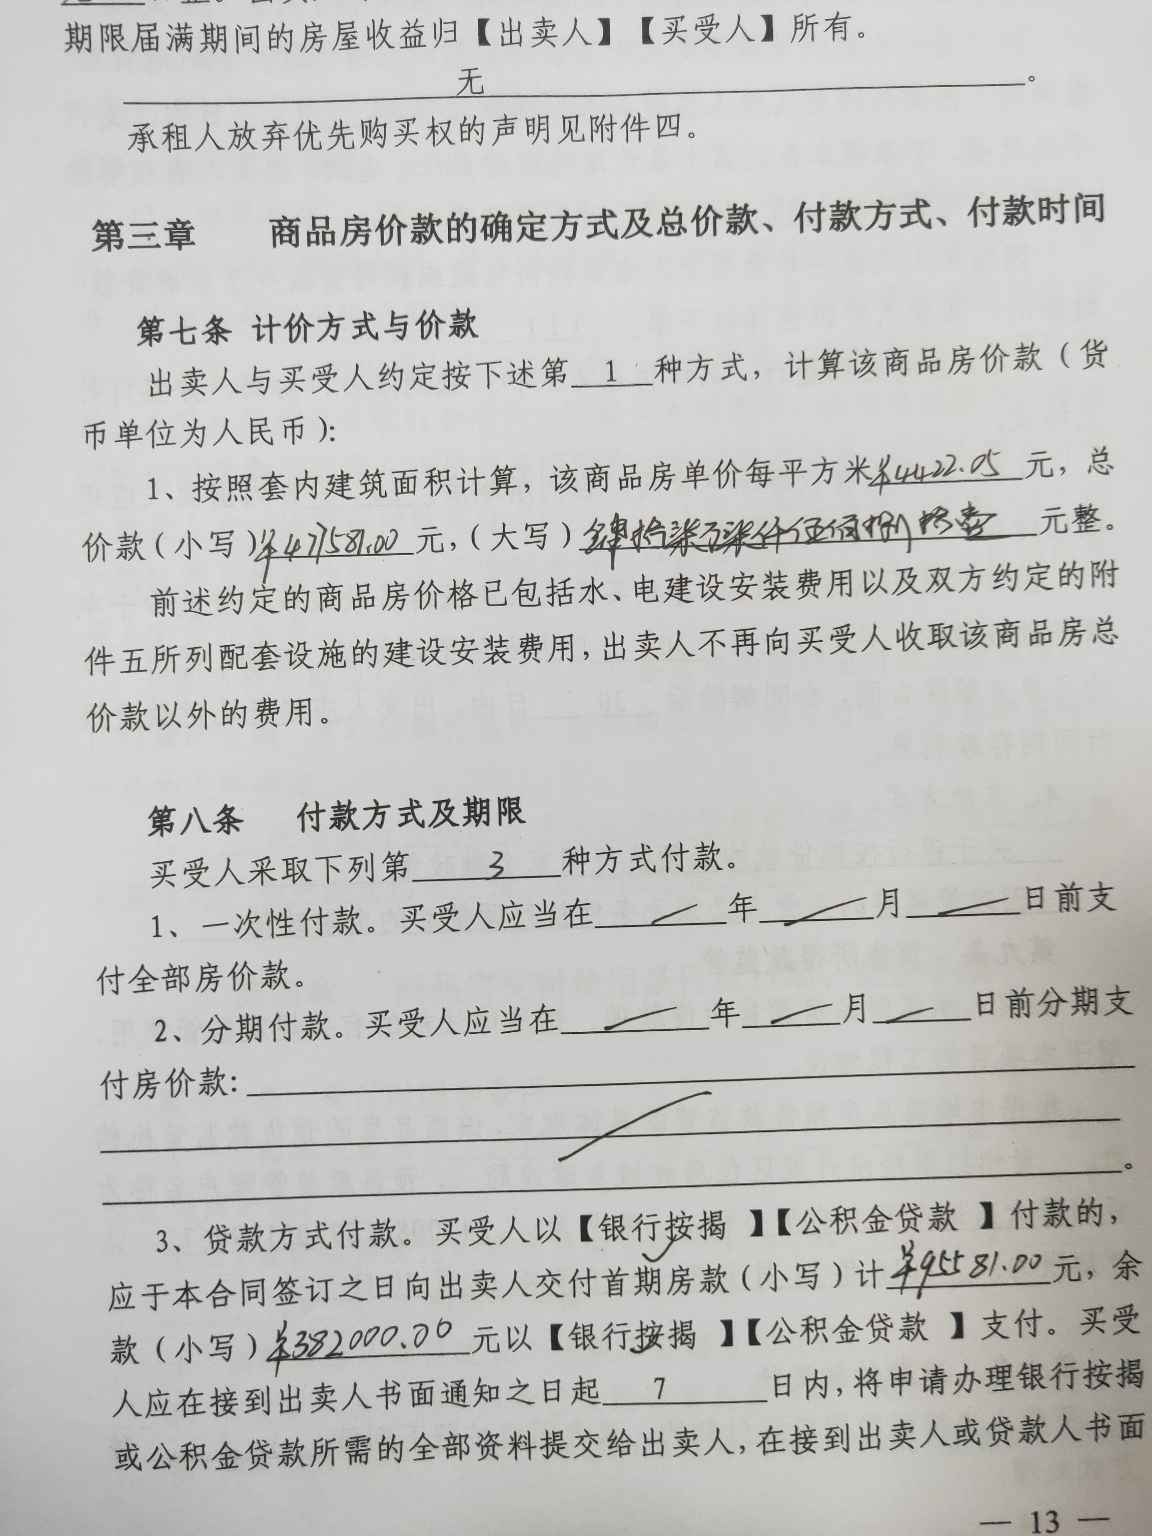 期限届满期间的房屋收益归【出卖人】【买受人】所有。
无。
承租人放弃优先购买权的声明见附件四。
第三章 商品房价款的确定方式及总价款、付款方式、付款时间
第七条 计价方式与价款
出卖人与买受人约定按下述第 1 种方式，计算该商品房价款（货
币单位为人民币）：
1、按照套内建筑面积计算，该商品房单价每平方米¥4422.05元，总
价款（小写）¥477581.00元，（大写）肆拾柒万柒仟伍佰捌拾壹元整。
前述约定的商品房价格已包括水、电建设安装费用以及双方约定的附
件五所列配套设施的建设安装费用，出卖人不再向买受人收取该商品房总
价款以外的费用。
第八条 付款方式及期限
买受人采取下列第 3 种方式付款。
1、一次性付款。买受人应当在 / 年 / 月 / 日前支
付全部房价款。
2、分期付款。买受人应当在 / 年 / 月 / 日前分期支
付房价款：
/
。
3、贷款方式付款。买受人以【银行按揭 】【公积金贷款 】付款的，
应于本合同签订之日向出卖人交付首期房款（小写）计¥95581.00元，余
款（小写）¥382000.00元以【银行按揭 】【公积金贷款 】支付。买受
人应在接到出卖人书面通知之日起 7 日内，将申请办理银行按揭
或公积金贷款所需的全部资料提交给出卖人，在接到出卖人或贷款人书面
— 13 —